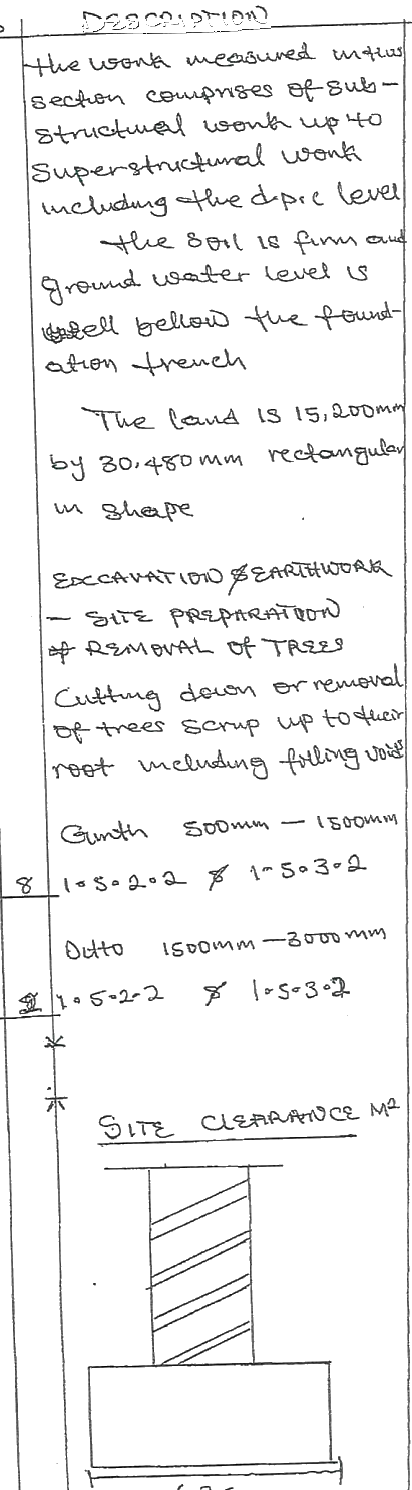 DESCRIPTION
the work measured in this
section comprises of sub-
structural work up to
Superstructural work
including the d.p.c level
the soil is firm and
ground water level is
well bellow the found-
ation trench
The land is 15,200mm
by 30,480mm rectangular
in shape
EXCAVATION & EARTHWORK
- SITE PREPARATION
REMOVAL OF TREES
Cutting down or removal
of trees scrup up to their
root including filling voids
Girth 500mm - 1500mm
8 1.5.2.2 & 1.5.3.2
Ditto 1500mm - 3000mm
2 1.5.2.2 & 1.5.3.2
SITE CLEARANCE M²